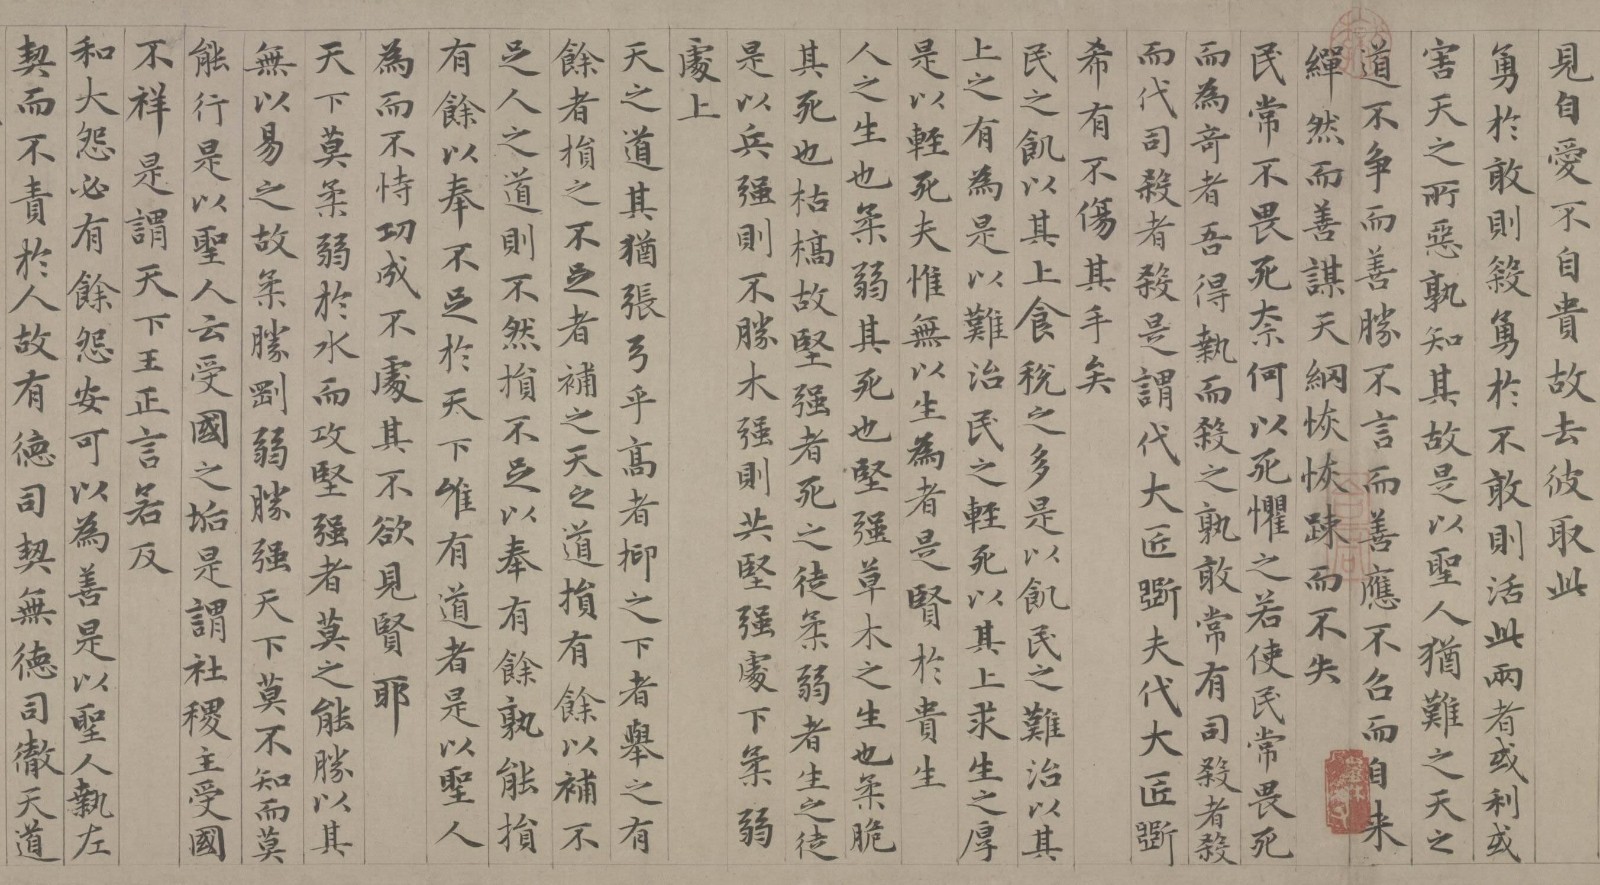 見自愛不自貴故去彼取此
勇於敢則殺勇於不敢則活此兩者或利或
害天之所惡孰知其故是以聖人猶難之天之
道不爭而善勝不言而善應不召而自来
繟然而善謀天網恢恢踈而不失
民常不畏死奈何以死懼之若使民常畏死
而為奇者吾得執而殺之孰敢常有司殺者殺
而代司殺者殺是謂代大匠斲夫代大匠斲
希有不傷其手矣
民之飢以其上食稅之多是以飢民之難治以其
上之有為是以難治民之輕死以其上求生之厚
是以輕死夫惟無以生為者是賢於貴生
人之生也柔弱其死也堅强草木之生也柔脆
其死也枯槁故堅强者死之徒柔弱者生之徒
是以兵强則不勝木强則共堅强處下柔弱
處上
天之道其猶張弓乎高者抑之下者舉之有
餘者損之不足者補之天之道損有餘以補不
足人之道則不然損不足以奉有餘孰能損
有餘以奉不足於天下唯有道者是以聖人
為而不恃功成不處其不欲見賢耶
天下莫柔弱於水而攻堅强者莫之能勝以其
無以易之故柔勝剛弱勝强天下莫不知而莫
能行是以聖人云受國之垢是謂社稷主受國
不祥是謂天下王正言若反
和大怨必有餘怨安可以為善是以聖人執左
契而不責於人故有德司契無德司徹天道